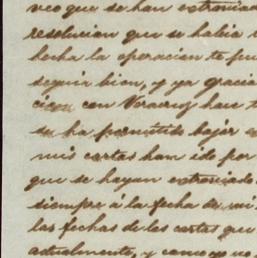 veo que se han extraviado
resolucion que se habia
hecha la operacion te pu
seguir bien, y ya gracia
cion con Veracruz han t
se ha permitido bajar
mis cartas han ido por
que se hayan extraviado
siempre á la fecha de mi
las fechas de las cartas que
actualmente, y como yo no